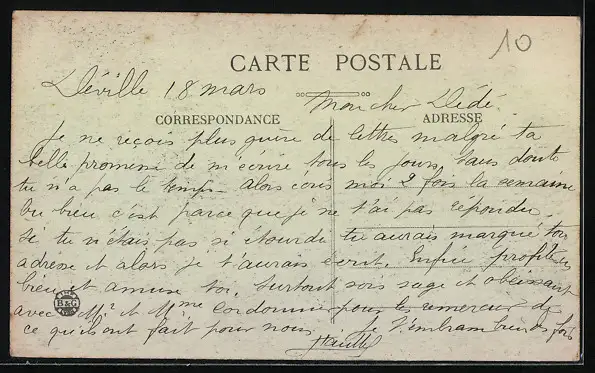 10
CARTE POSTALE
Déville 18 mars
Mon cher Dédé
CORRESPONDANCE
ADRESSE
Je ne reçois plus guère de lettres malgré ta
belle promesse de m'écrire tous les jours, sans doute
tu n'a pas le temps alors écris moi 2 fois la semaine
Ou bien c'est parce que je ne t'ai pas répondu.
Si tu n'étais pas si étourdi tu aurais marqué ton
adresse et alors je t'aurais écrit. Enfin profite
bien et amuse toi, surtout sois sage et obéissant
avec Mr et Mme Cordonnier pour les remercier de
ce qu'ils ont fait pour nous. Je t'embrasse bien des fois
B&G